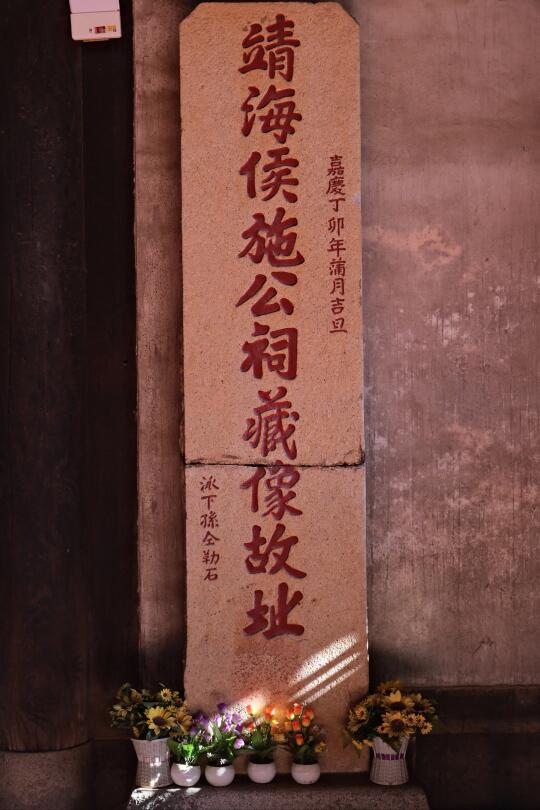 嘉慶丁卯年蒲月吉旦
靖海侯施公祠藏像故址
派下孫仝勒石